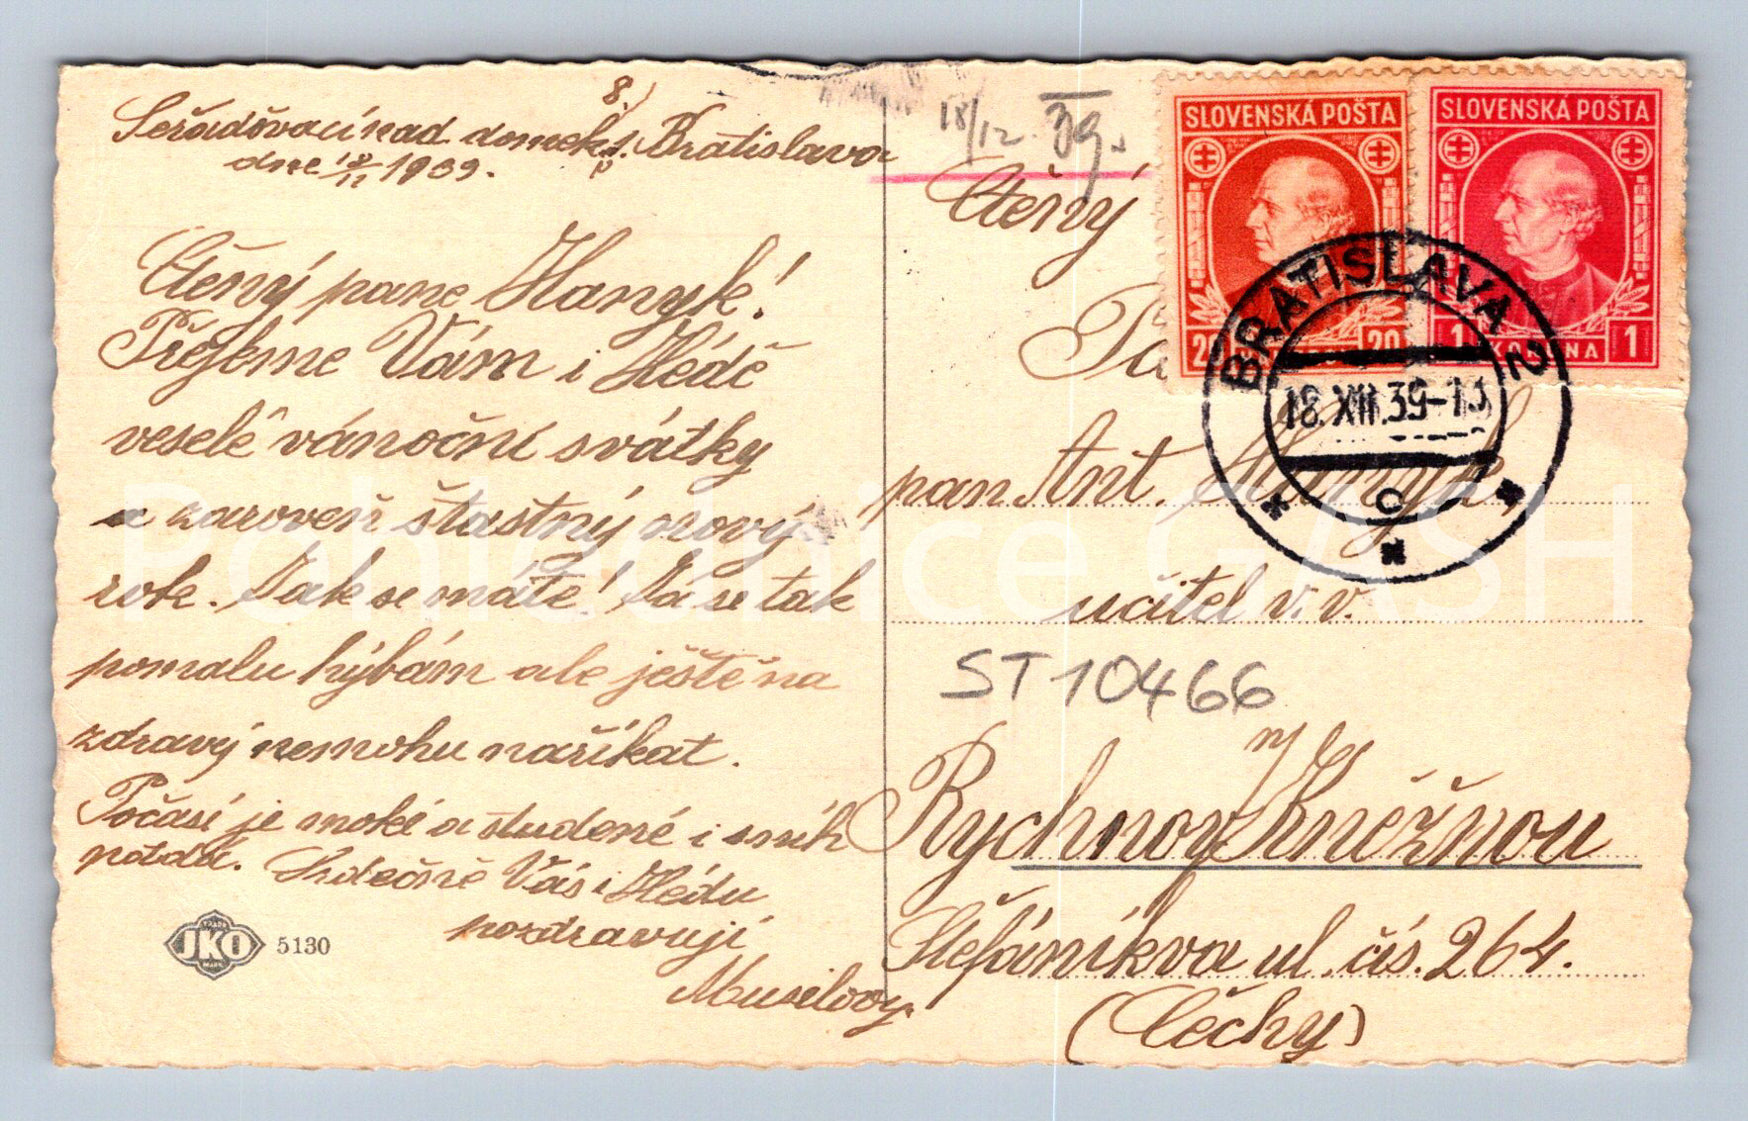 8.)
Seřaďovací nad. domek 1. Bratislava
dne 18/12 1939.
Ctěný pane Hanyk!
Přejeme Vám i Hédě
veselé vánoční svátky
a zároveň štastný nový
rok. Jak se máte! Já se tak
pomalu hýbám ale ještě na
zdravý nemohu naříkat.
Počasí je mokré a studené i sníh
Srdečně Vás i Hédu
pozdravují
Musilovy
JKO 5130
18/12. 39.
Ctěný
Pa
pan Ant. Hanyk
učitel v. v.
ST10466
Rychnov n/Kněžnou
Štefánikva ul. čís. 264.
(Čechy)
SLOVENSKÁ POŠTA
20
SLOVENSKÁ POŠTA
1 KORUNA 1
BRATISLAVA 2
18.XII.39-13
C
Pohlednice GASH